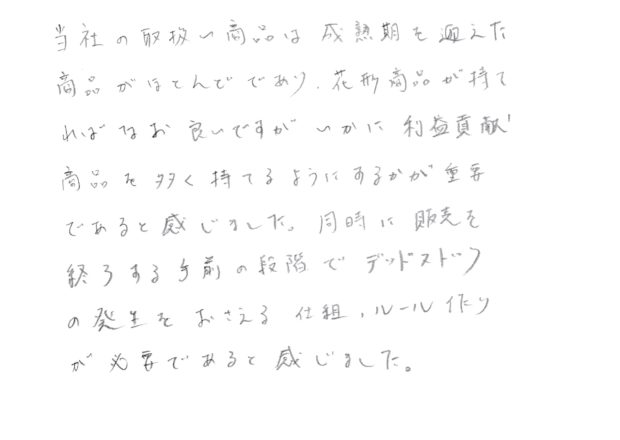 当社の取扱い商品は成熟期を迎えた
商品がほとんどであり、花形商品が持て
ればなお良いですが いかに利益貢献
商品を多く持てるようにするかが重要
であると感じました。同時に販売を
終了する手前の段階でデッドストック
の発生をおさえる仕組、ルール作り
が必要であると感じました。